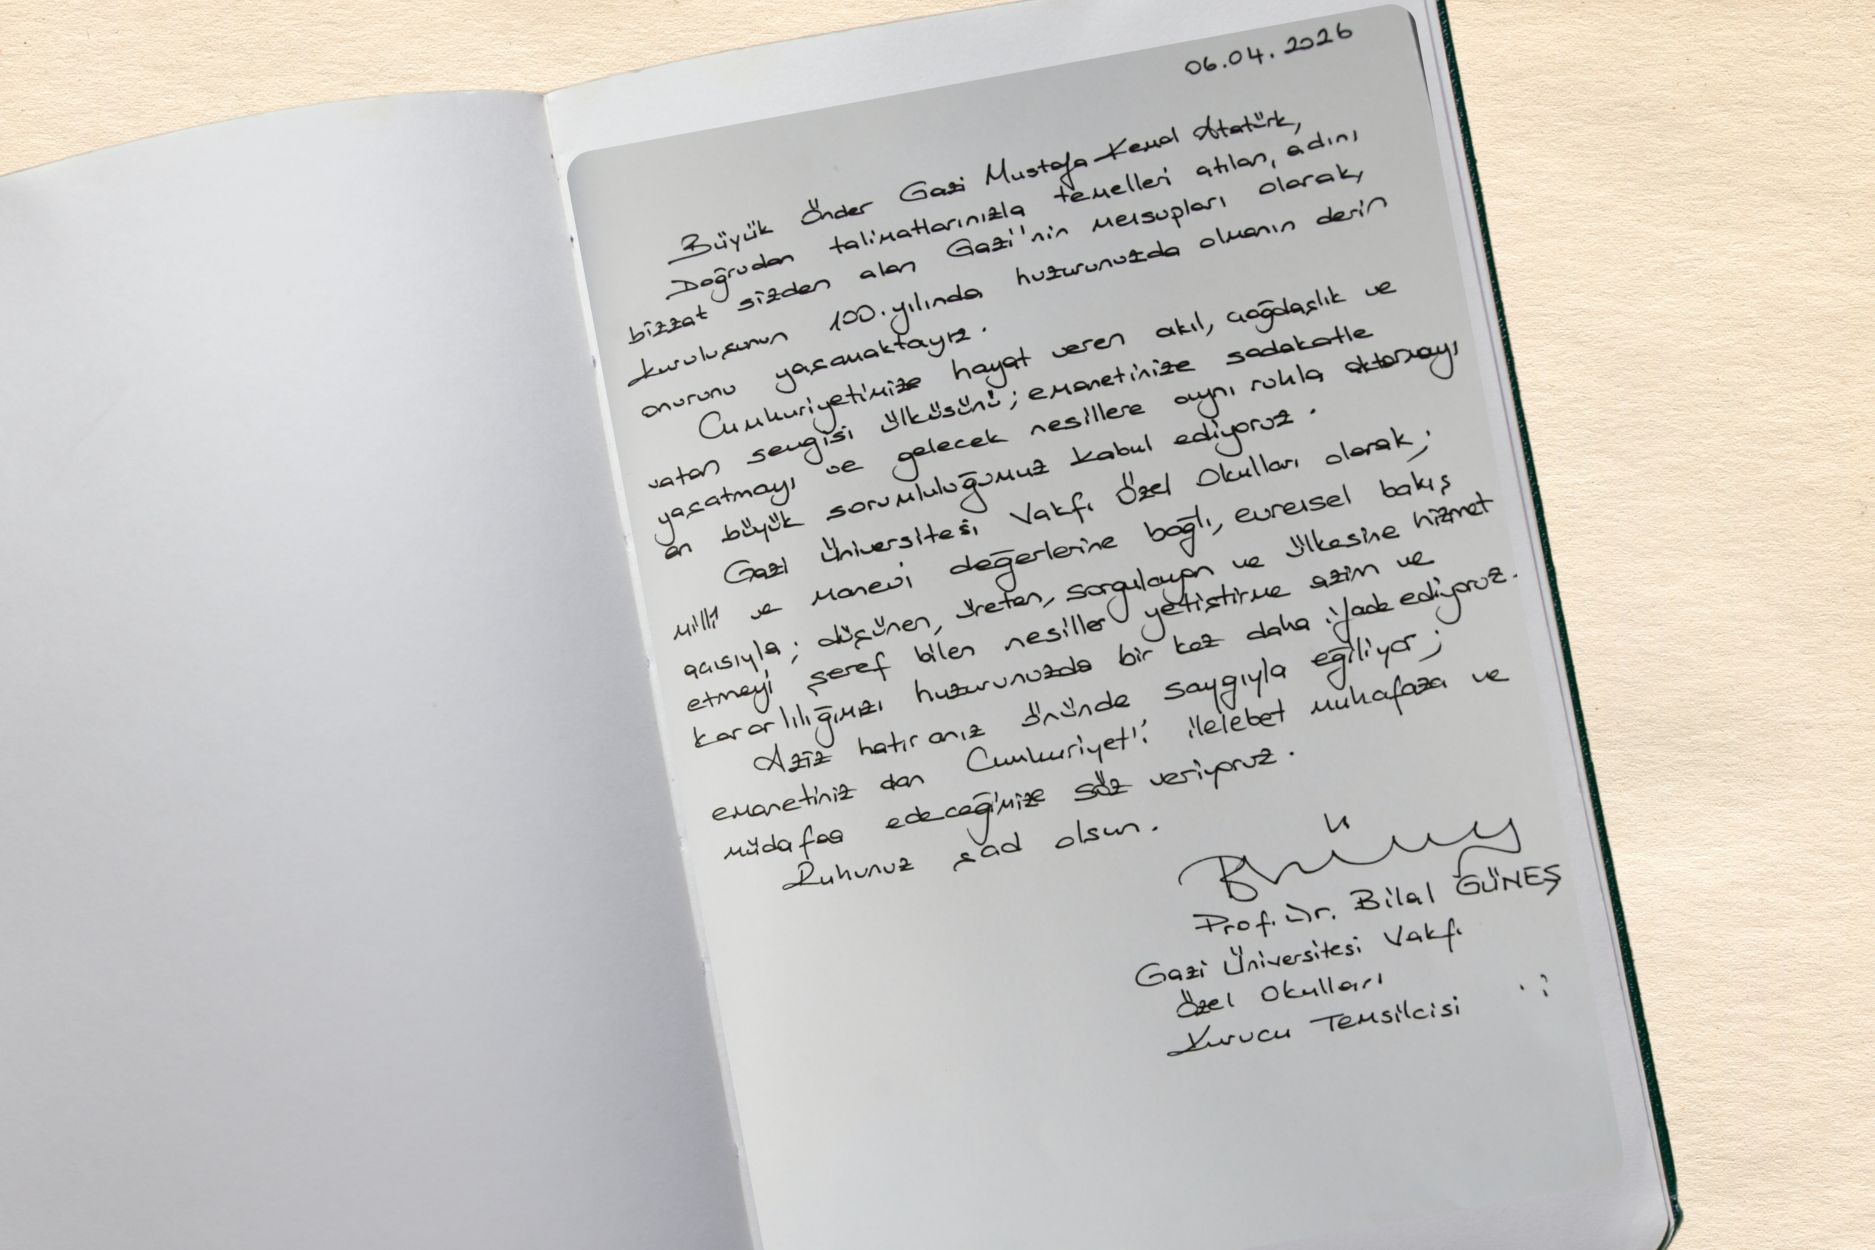 06.04.2026
Büyük Önder Gazi Mustafa Kemal Atatürk,
Doğrudan talimatlarınızla temelleri atılan, adını
bizzat sizden alan Gazi'nin mensupları olarak,
kuruluşunun 100. yılında huzurunuzda olmanın derin
onurunu yaşamaktayız.
Cumhuriyetimize hayat veren akıl, çağdaşlık ve
vatan sevgisi ülküsünü; emanetinize sadakatle
yaşatmayı ve gelecek nesillere aynı ruhla aktarmayı
en büyük sorumluluğumuz kabul ediyoruz.
Gazi Üniversitesi Vakfı Özel Okulları olarak;
milli ve manevi değerlerine bağlı, evrensel bakış
açısıyla; düşünen, üreten, sorgulayan ve ülkesine hizmet
etmeyi şeref bilen nesiller yetiştirme azim ve
kararlılığımızı huzurunuzda bir kez daha ifade ediyoruz.
Aziz hatıranız önünde saygıyla eğiliyor;
emanetiniz olan Cumhuriyet'i ilelebet muhafaza ve
müdafaa edeceğimize söz veriyoruz.
Ruhunuz şad olsun.
Prof. Dr. Bilal GÜNEŞ
Gazi Üniversitesi Vakfı
Özel Okulları
Kurucu Temsilcisi